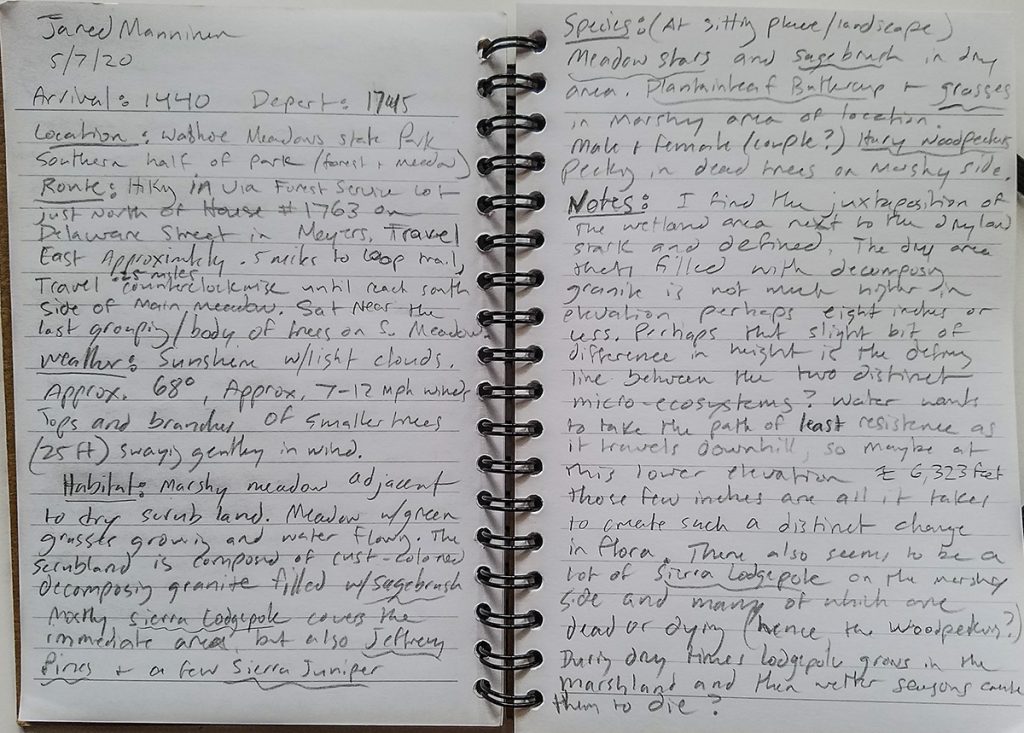 Jared Manninen
5/7/20
Arrival: 1440 Depart: 1745
Location: Washoe Meadows State Park
Southern half of park (forest + meadow)
Route: Hiky in via Forest Service Lot
just North of House #1763 on
Delaware Street in Meyers. Travel
East Approximately .5 miles to loop trail,
Travel .25 miles counterclockwise until reach south
side of Main Meadow. Sat near the
last grouping/body of trees on S. Meadow.
Weather: Sunshine w/light clouds.
Approx. 68°, Approx. 7-12 mph winds
Tops and branches of smaller trees
(25 ft) swaying gently in wind.
Habitat: Marshy meadow adjacent
to dry scrub land. Meadow w/green
grasses growing and water flowing. The
scrubland is composed of rust-colored
decomposing granite filled w/sagebrush
Mostly Sierra Lodgepole covers the
immediate area, but also Jeffrey
Pines + a few Sierra Juniper
Species: (At sitting place/landscape)
Meadow stars and sagebrush in dry
area. Plantainleaf Buttercup + grasses
in Marshy area of location.
Male + female (couple?) Hairy Woodpeckers
Pecking in dead trees on marshy side.
Notes: I find the juxtaposition of
the wetland area next to the dryland
stark and defined. The dry area
that's filled with decomposing
granite is not much higher in
elevation perhaps eight inches or
less. Perhaps that slight bit of
difference in height is the defining
line between the two distinct
micro-ecosystems? Water wants
to take the path of least resistence as
it travels downhill, so maybe at
this lower elevation ± 6,323 feet
those few inches are all it takes
to create such a distinct change
in flora. There also seems to be a
lot of Sierra Lodgepole on the marshy
side and many of which are
dead or dying (hence, the woodpeckers?)
During dry times lodgepole grows in the
marshland and then wetter seasons cause
them to die?